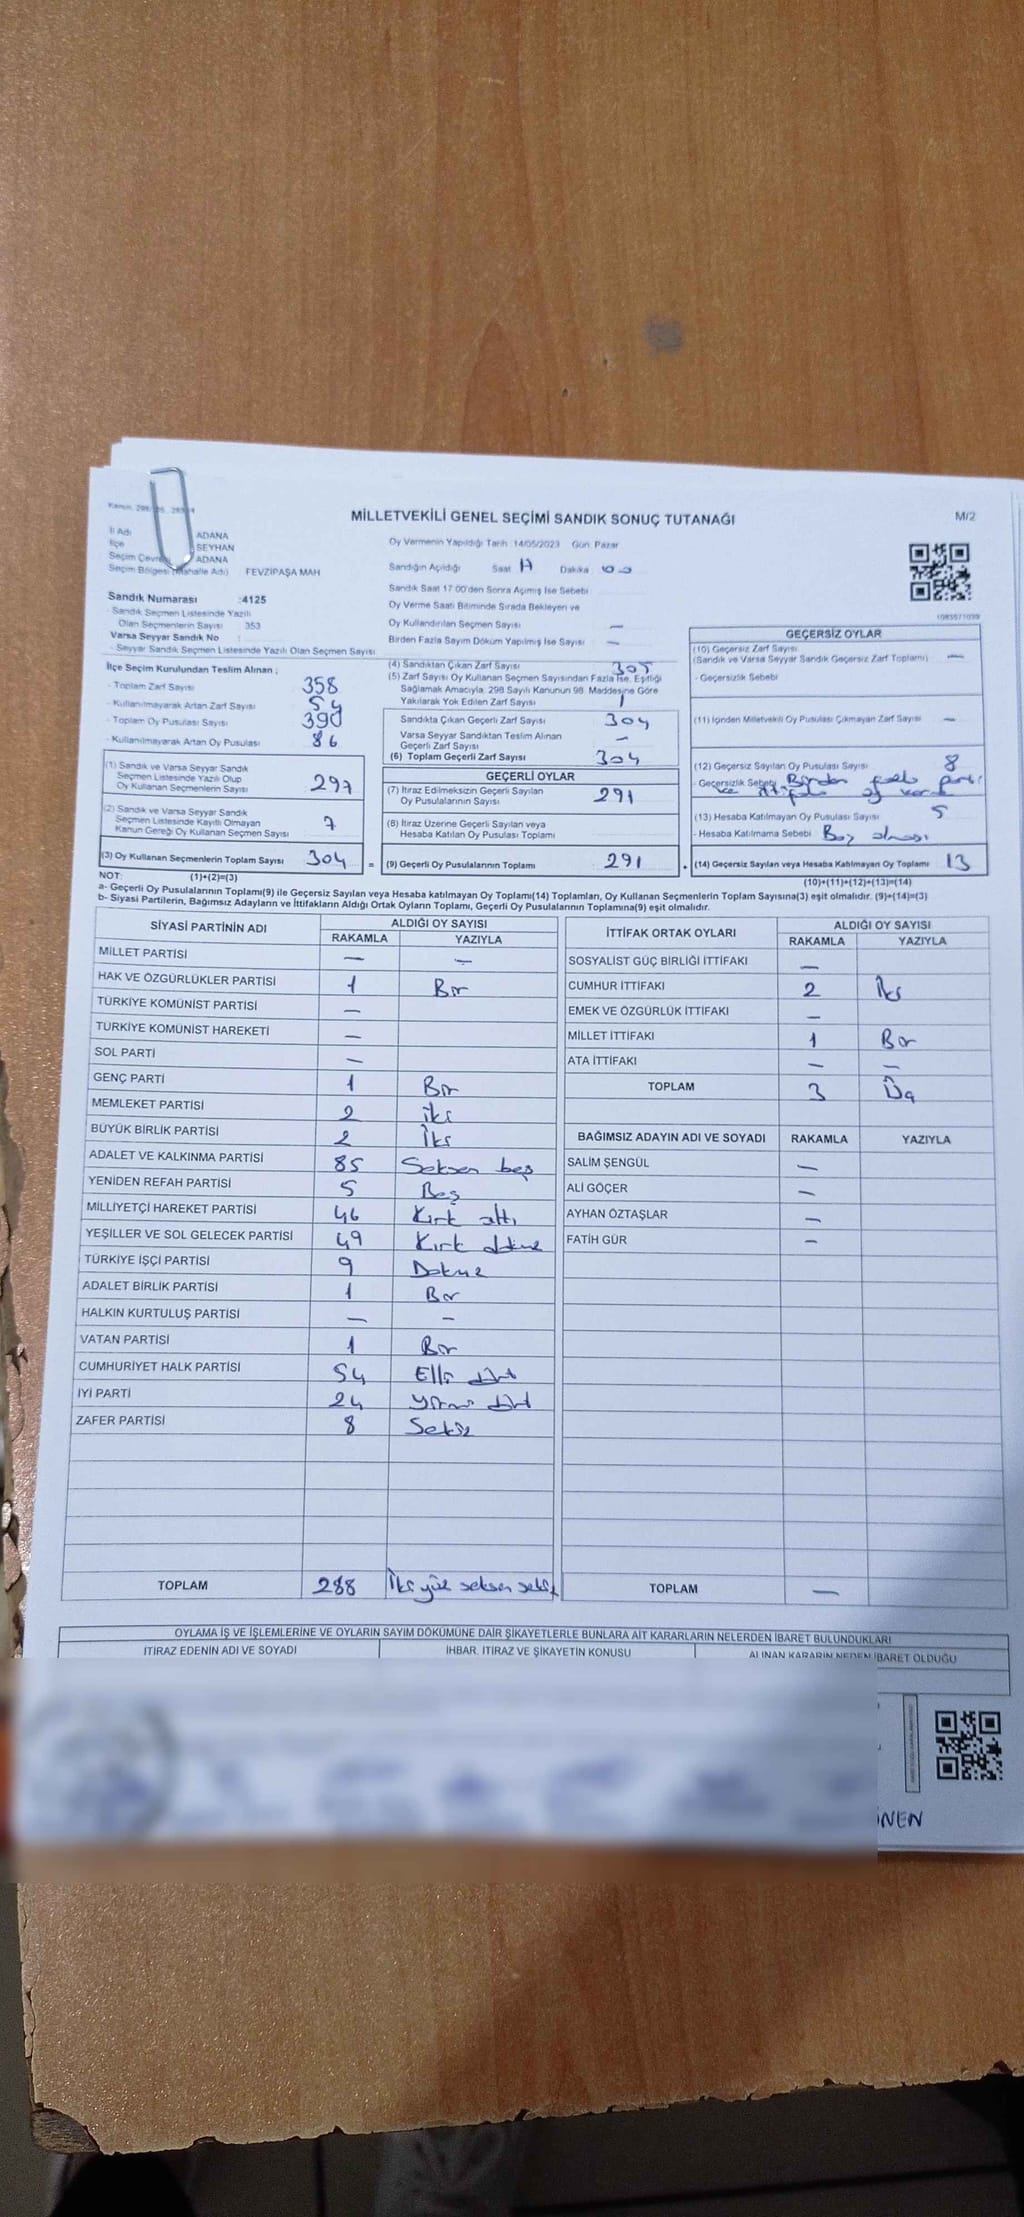 MİLLETVEKİLİ GENEL SEÇİMİ SANDIK SONUÇ TUTANAĞI
M/2
İl Adı ADANA
İlçe SEYHAN
Seçim Çevresi ADANA
Seçim Bölgesi (Mahalle Adı) FEVZİPAŞA MAH
Oy Vermenin Yapıldığı Tarih 14/05/2023 Gün: Pazar
Sandığın Açıldığı Saat Dakika
Sandık Saat 17 00'den Sonra Açılmış İse Sebebi
Oy Verme Saati Bitiminde Sırada Bekleyen ve
Oy Kullandırılan Seçmen Sayısı —
Birden Fazla Sayım Döküm Yapılmış İse Sayısı —
Sandık Numarası :4125
- Sandık Seçmen Listesinde Yazılı
Olan Seçmenlerin Sayısı 353
Varsa Seyyar Sandık No :
- Seyyar Sandık Seçmen Listesinde Yazılı Olan Seçmen Sayısı
İlçe Seçim Kurulundan Teslim Alınan ;
- Toplam Zarf Sayısı 358
- Kullanılmayarak Artan Zarf Sayısı 54
- Toplam Oy Pusulası Sayısı 390
- Kullanılmayarak Artan Oy Pusulası 86
(1) Sandık ve Varsa Seyyar Sandık
Seçmen Listesinde Yazılı Olup
Oy Kullanan Seçmenlerin Sayısı 297
(2) Sandık ve Varsa Seyyar Sandık
Seçmen Listesinde Kayıtlı Olmayan
Kanun Gereği Oy Kullanan Seçmen Sayısı 7
(3) Oy Kullanan Seçmenlerin Toplam Sayısı 304 =
(4) Sandıktan Çıkan Zarf Sayısı 305
(5) Zarf Sayısı Oy Kullanan Seçmen Sayısından Fazla İse, Eşitliği
Sağlamak Amacıyla, 298 Sayılı Kanunun 98. Maddesine Göre
Yakılarak Yok Edilen Zarf Sayısı 1
Sandıkta Çıkan Geçerli Zarf Sayısı 304
Varsa Seyyar Sandıktan Teslim Alınan
Geçerli Zarf Sayısı —
(6) Toplam Geçerli Zarf Sayısı 304
GEÇERLİ OYLAR
(7) İtiraz Edilmeksizin Geçerli Sayılan
Oy Pusulalarının Sayısı 291
(8) İtiraz Üzerine Geçerli Sayılan veya
Hesaba Katılan Oy Pusulası Toplamı
(9) Geçerli Oy Pusulalarının Toplamı 291
1083571039
GEÇERSİZ OYLAR
(10) Geçersiz Zarf Sayısı
(Sandık ve Varsa Seyyar Sandık Geçersiz Zarf Toplamı) —
- Geçersizlik Sebebi
(11) İçinden Milletvekili Oy Pusulası Çıkmayan Zarf Sayısı —
(12) Geçersiz Sayılan Oy Pusulası Sayısı 8
- Geçersizlik Sebebi Birden fazla parti
ve ittifaka oy verme
(13) Hesaba Katılmayan Oy Pusulası Sayısı 5
- Hesaba Katılmama Sebebi Boş olması
(14) Geçersiz Sayılan veya Hesaba Katılmayan Oy Toplamı 13
NOT: (1)+(2)=(3) (10)+(11)+(12)+(13)=(14)
a- Geçerli Oy Pusulalarının Toplamı(9) ile Geçersiz Sayılan veya Hesaba katılmayan Oy Toplamı(14) Toplamları, Oy Kullanan Seçmenlerin Toplam Sayısına(3) eşit olmalıdır. (9)+(14)=(3)
b- Siyasi Partilerin, Bağımsız Adayların ve İttifakların Aldığı Ortak Oyların Toplamı, Geçerli Oy Pusulalarının Toplamına(9) eşit olmalıdır.
SİYASİ PARTİNİN ADI ALDIĞI OY SAYISI
RAKAMLA YAZIYLA
MİLLET PARTİSİ — —
HAK VE ÖZGÜRLÜKLER PARTİSİ 1 Bir
TÜRKİYE KOMÜNİST PARTİSİ —
TÜRKİYE KOMÜNİST HAREKETİ —
SOL PARTİ —
GENÇ PARTİ 1 Bir
MEMLEKET PARTİSİ 2 iki
BÜYÜK BİRLİK PARTİSİ 2 İki
ADALET VE KALKINMA PARTİSİ 85 Seksen beş
YENİDEN REFAH PARTİSİ 5 Beş
MİLLİYETÇİ HAREKET PARTİSİ 46 Kırk altı
YEŞİLLER VE SOL GELECEK PARTİSİ 49 Kırk dokuz
TÜRKİYE İŞÇİ PARTİSİ 9 Dokuz
ADALET BİRLİK PARTİSİ 1 Bir
HALKIN KURTULUŞ PARTİSİ — —
VATAN PARTİSİ 1 Bir
CUMHURİYET HALK PARTİSİ 54 Elli dört
İYİ PARTİ 24 Yirmi dört
ZAFER PARTİSİ 8 Sekiz
TOPLAM 288 İki yüz seksen sekiz
İTTİFAK ORTAK OYLARI ALDIĞI OY SAYISI
RAKAMLA YAZIYLA
SOSYALİST GÜÇ BİRLİĞİ İTTİFAKI —
CUMHUR İTTİFAKI 2 İki
EMEK VE ÖZGÜRLÜK İTTİFAKI —
MİLLET İTTİFAKI 1 Bir
ATA İTTİFAKI — —
TOPLAM 3 Üç
BAĞIMSIZ ADAYIN ADI VE SOYADI RAKAMLA YAZIYLA
SALİM ŞENGÜL —
ALİ GÖÇER —
AYHAN ÖZTAŞLAR —
FATİH GÜR —
TOPLAM —
OYLAMA İŞ VE İŞLEMLERİNE VE OYLARIN SAYIM DÖKÜMÜNE DAİR ŞİKAYETLERLE BUNLARA AİT KARARLARIN NELERDEN İBARET BULUNDUKLARI
İTİRAZ EDENİN ADI VE SOYADI İHBAR, İTİRAZ VE ŞİKAYETİN KONUSU ALINAN KARARIN NEDEN İBARET OLDUĞU